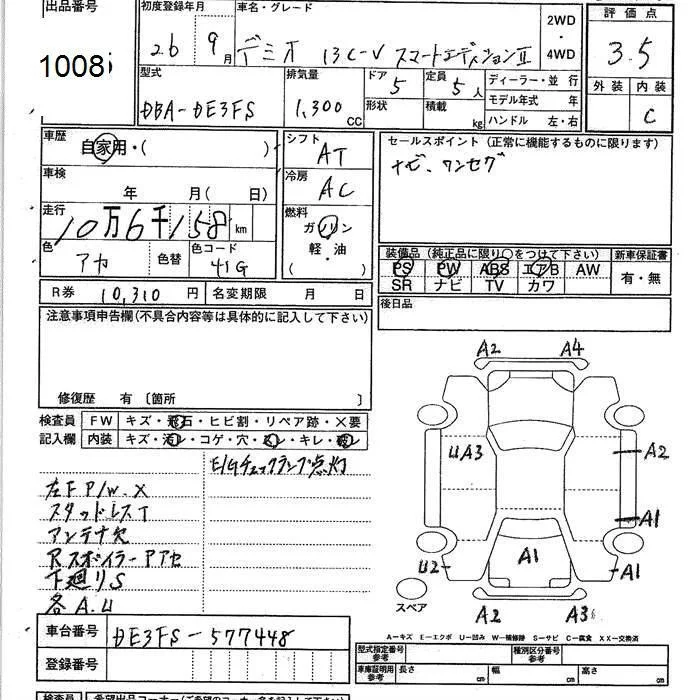 出品番号
1008
初度登録年月
26 9月
車名・グレード
デミオ 13C-V スマートエディションⅡ
2WD
・
4WD
評価点
3.5
外装 内装
C
型式
DBA-DE3FS
排気量
1,300 CC
ドア
5
定員
5人
形状
積載
kg
ディーラー・並 行
モデル年式 年
ハンドル 左・右
車歴
自家用・( )
車検
年 月( 日)
走行
10万6千158 km
色
アカ
色替
色コード
41G
シフト
AT
冷房
AC
燃料
ガソリン
軽・油
( )
セールスポイント(正常に機能するものに限ります)
ナビ、ワンセグ
装備品(純正品に限り○をつけて下さい)
新車保証書
PS PW ABS エアB AW
SR ナビ TV カワ
有・無
R券 10,310 円
名変期限 月 日
後日品
注意事項申告欄(不具合内容等は具体的に記入して下さい)
修復歴 有 〔箇所 〕
検査員
記入欄
FW キズ・飛石・ヒビ割・リペア跡・×要
内装 キズ・汚レ・コゲ・穴・・キレ・
E/Gチェックランプ点灯
左F P/W.X
スタッドレスT
アンテナ欠
Rスポイラー
下廻りS
各A.U
A2 A4
UA3
A2
A1
A1
U2
A1
スペア
A2 A3
車台番号 DE3FS-577448
登録番号
A-キズ E-エクボ U-凹み W-補修跡 S-サビ C-腐食 XX-交換済
型式指定番号
参考
種別区分番号
参考
車庫証明用
参考
長さ cm
幅 cm
高さ cm
検査員
希望出品コーナー(ご希望のコーナー名を記入して下さい)